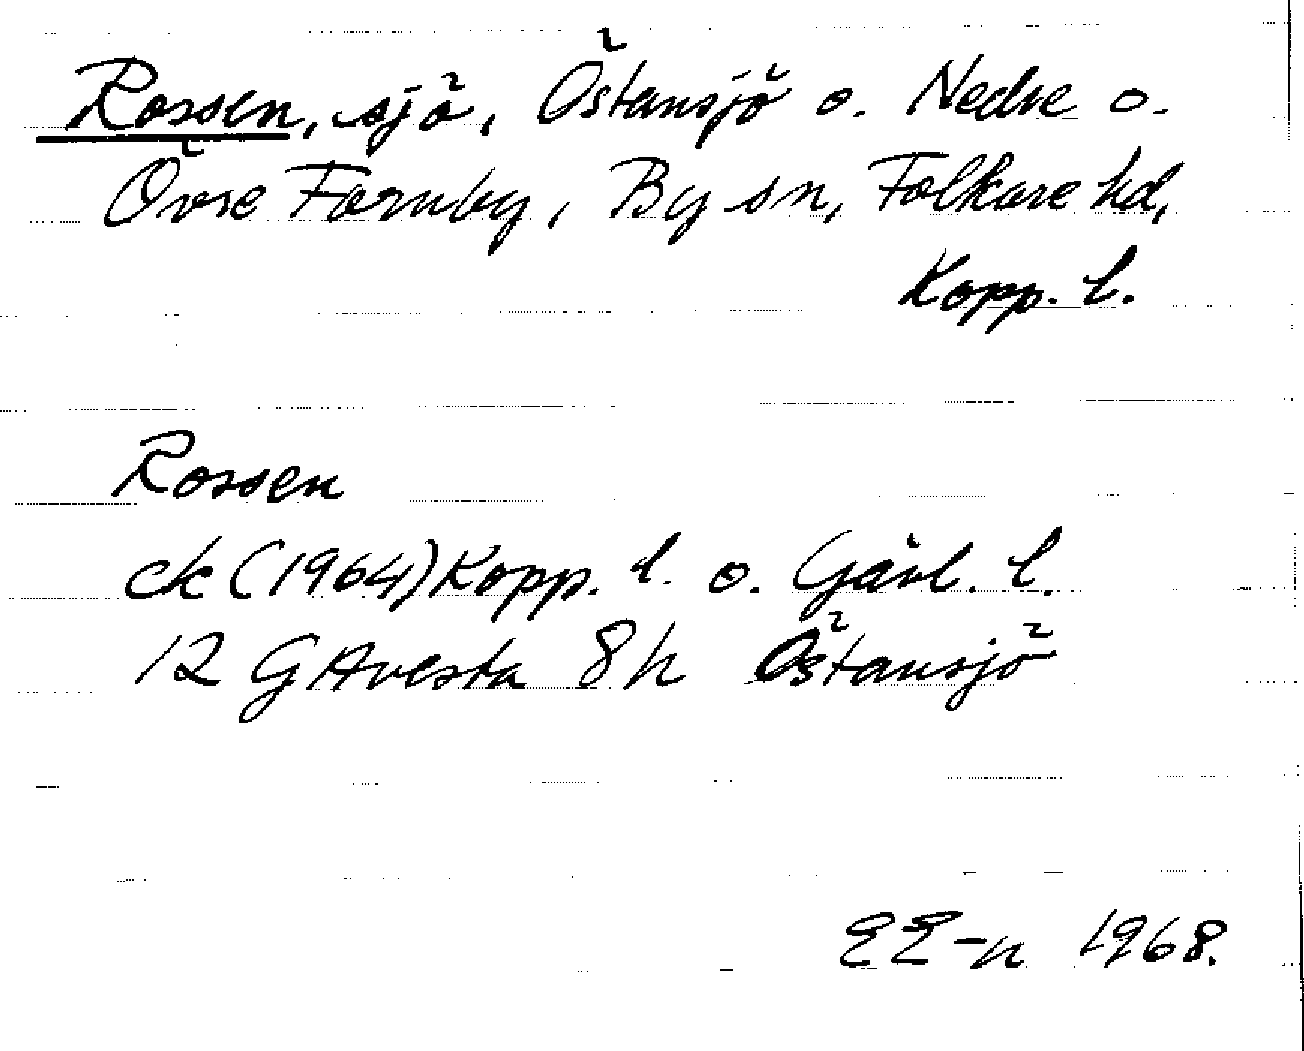 Rossen, sjö, Östansjö o. Nedre o.
Övre Fornby, By sn, Folkare hd,
Kopp. l.
Rossen
ek (1964) Kopp. l. o. Gävl. l.
12 G Avesta 8h Östansjö
EE-n 1968.